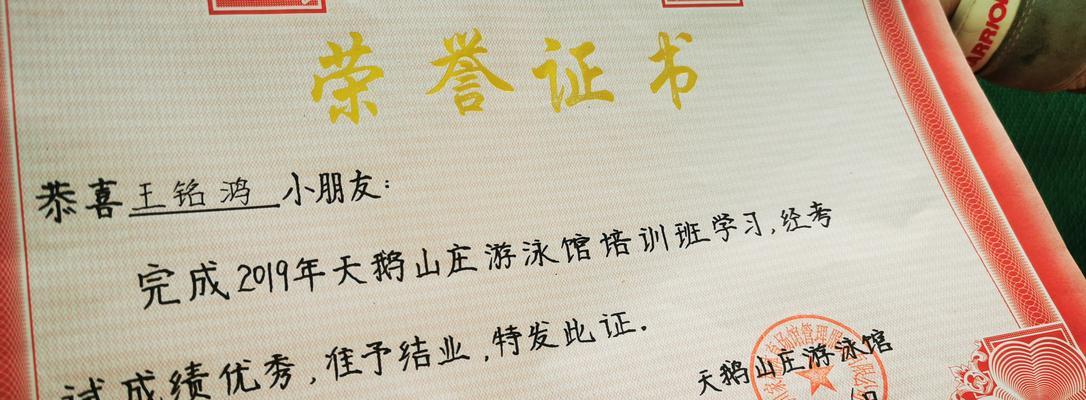 荣誉证书
恭喜王铭鸿小朋友:
完成2019年天鹅山庄游泳馆培训班学习,经考
试成绩优秀,准予结业,特发此证.
天鹅山庄游泳馆